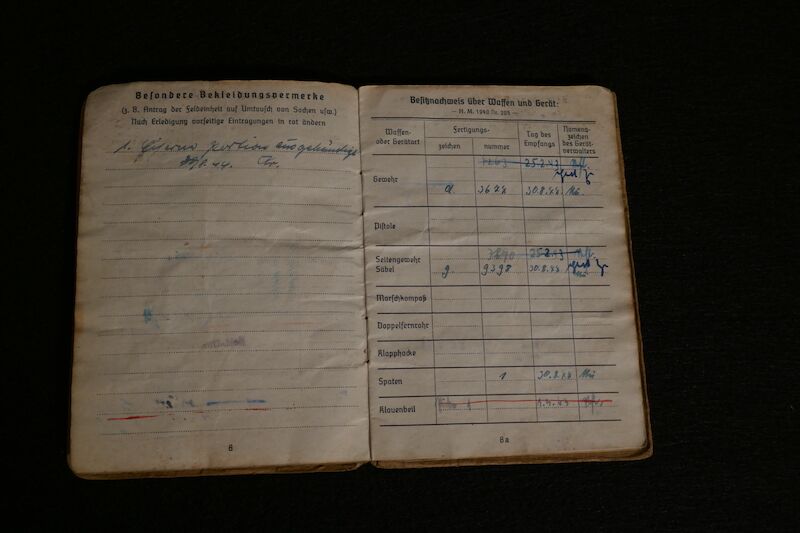 Besondere Bekleidungsvermerke
(z. B. Antrag der Feldeinheit auf Umtausch von Sachen usw.)
Nach Erledigung vorseitige Eintragungen in rot ändern
1. Eiserne Portion ausgehändigt
8.44.
6
Besitznachweis über Waffen und Gerät:
— H. M. 1940 Nr. 205 —
Waffen- oder Geräteart
Fertigungs-
zeichen
nummer
Tag des Empfangs
Namenszeichen des Gerätverwalters
25.2.43
Gewehr
a. 3644 30.8.44
Pistole
25.2.43
Seitengewehr
Säbel
g. 9398 30.8.44
Marschkompaß
Doppelfernrohr
Klapphacke
Spaten
1 30.8.44
Klauenbeil
8a